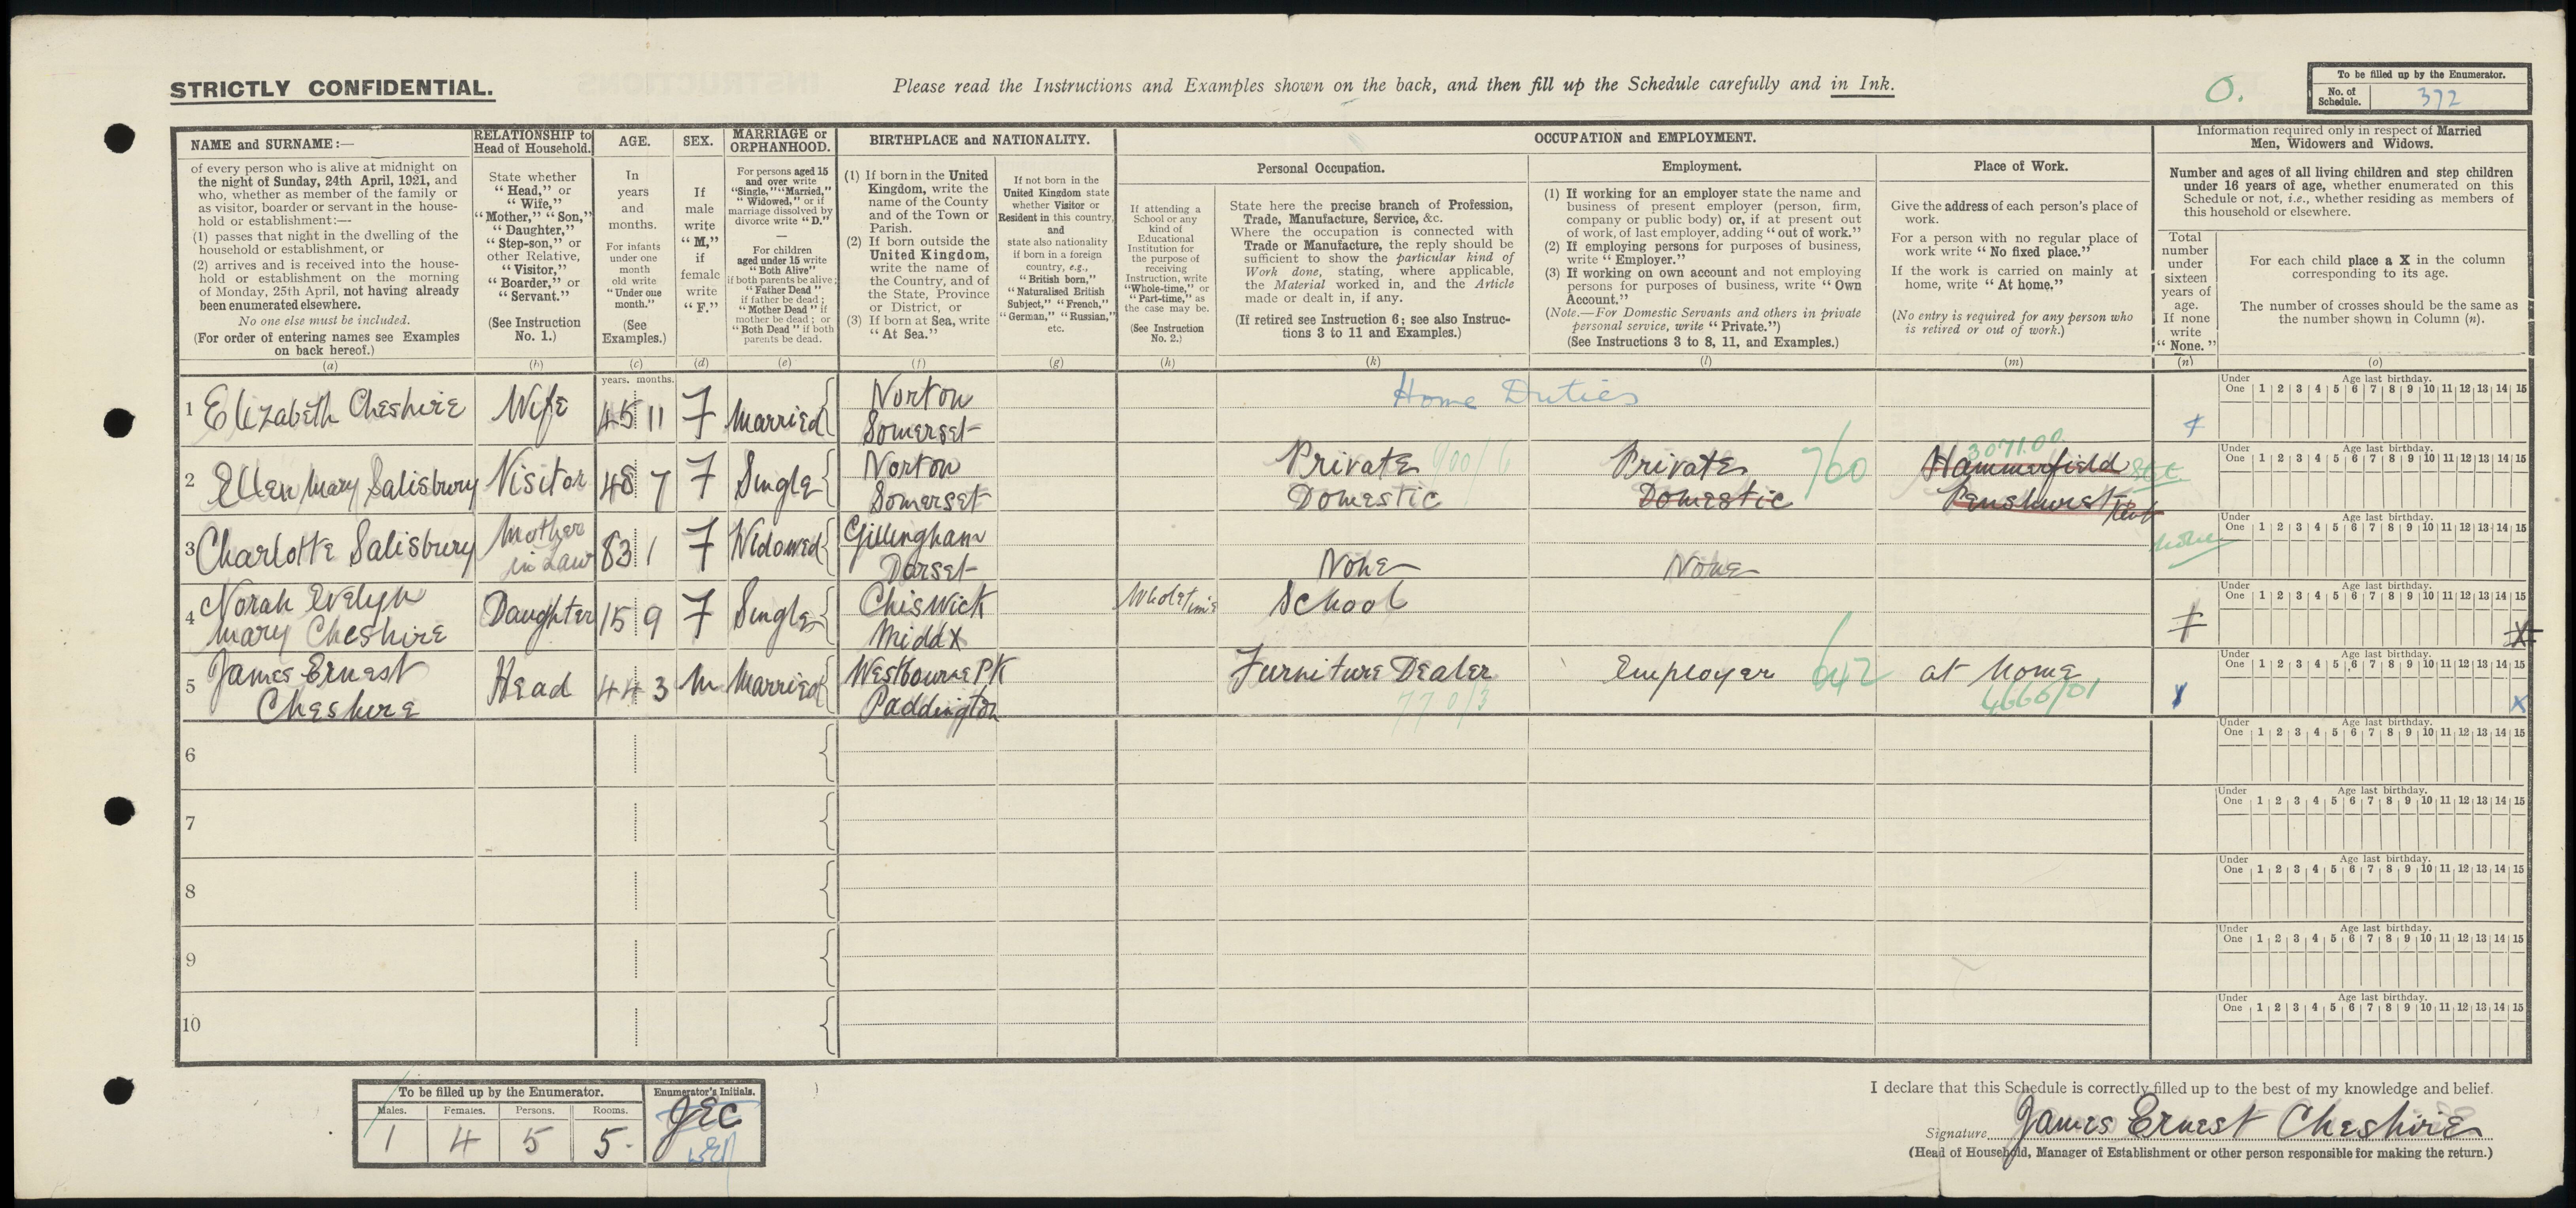 STRICTLY CONFIDENTIAL.
Please read the Instructions and Examples shown on the back, and then fill up the Schedule carefully and in Ink.
O.
To be filled up by the Enumerator.
No. of Schedule. 372
NAME and SURNAME:—
of every person who is alive at midnight on
the night of Sunday, 24th April, 1921, and
who, whether as member of the family or
as visitor, boarder or servant in the house-
hold or establishment:—
(1) passes that night in the dwelling of the
household or establishment, or
(2) arrives and is received into the house-
hold or establishment on the morning
of Monday, 25th April, not having already
been enumerated elsewhere.
No one else must be included.
(For order of entering names see Examples
on back hereof.)
(a)
RELATIONSHIP to
Head of Household.
State whether
"Head," or
"Wife,"
"Mother," "Son,"
"Daughter,"
"Step-son," or
other Relative,
"Visitor,"
"Boarder," or
"Servant."
(See Instruction
No. 1.)
(b)
AGE.
In
years
and
months.
For infants
under one
month
old write
"Under one
month."
(See
Examples.)
(c)
SEX.
If
male
write
"M,"
if
female
write
"F."
(d)
MARRIAGE or
ORPHANHOOD.
For persons aged 15
and over write
"Single," "Married,"
"Widowed," or if
marriage dissolved by
divorce write "D."
—
For children
aged under 15 write
"Both Alive"
if both parents be alive;
"Father Dead"
if father be dead;
"Mother Dead" if
mother be dead; or
"Both Dead" if both
parents be dead.
(e)
BIRTHPLACE and NATIONALITY.
(1) If born in the United
Kingdom, write the
name of the County
and of the Town or
Parish.
(2) If born outside the
United Kingdom,
write the name of
the Country, and of
the State, Province
or District, or
(3) If born at Sea, write
"At Sea."
(f)
If not born in the
United Kingdom state
whether Visitor or
Resident in this country,
and
state also nationality
if born in a foreign
country, e.g.,
"British born,"
"Naturalised British
Subject," "French,"
"German," "Russian,"
etc.
(g)
OCCUPATION and EMPLOYMENT.
Personal Occupation.
If attending a
School or any
kind of
Educational
Institution for
the purpose of
receiving
Instruction, write
"Whole-time," or
"Part-time," as
the case may be.
(See Instruction
No. 2.)
(h)
State here the precise branch of Profession,
Trade, Manufacture, Service, &c.
Where the occupation is connected with
Trade or Manufacture, the reply should be
sufficient to show the particular kind of
Work done, stating, where applicable,
the Material worked in, and the Article
made or dealt in, if any.
(If retired see Instruction 6; see also Instruc-
tions 3 to 11 and Examples.)
(k)
Employment.
(1) If working for an employer state the name and
business of present employer (person, firm,
company or public body) or, if at present out
of work, of last employer, adding "out of work."
(2) If employing persons for purposes of business,
write "Employer."
(3) If working on own account and not employing
persons for purposes of business, write "Own
Account."
(Note.—For Domestic Servants and others in private
personal service, write "Private.")
(See Instructions 3 to 8, 11, and Examples.)
(l)
Place of Work.
Give the address of each person's place of
work.
For a person with no regular place of
work write "No fixed place."
If the work is carried on mainly at
home, write "At home."
(No entry is required for any person who
is retired or out of work.)
(m)
Information required only in respect of Married
Men, Widowers and Widows.
Number and ages of all living children and step children
under 16 years of age, whether enumerated on this
Schedule or not, i.e., whether residing as members of
this household or elsewhere.
Total
number
under
sixteen
years of
age.
If none
write
"None."
(n)
For each child place a X in the column
corresponding to its age.
The number of crosses should be the same as
the number shown in Column (n).
(o)
years. months.
1 Elizabeth Cheshire Wife 45 11 F Married Norton Somerset Home Duties
Under One Age last birthday. 1 2 3 4 5 6 7 8 9 10 11 12 13 14 15
2 Ellen Mary Salisbury Visitor 48 7 F Single Norton Somerset Private Domestic 900/6 Private Domestic 760 Hammerfield Penshurst Kent 3071.00
Under One Age last birthday. 1 2 3 4 5 6 7 8 9 10 11 12 13 14 15
3 Charlotte Salisbury Mother in Law 83 1 F Widowed Gillingham Dorset None None
Under One Age last birthday. 1 2 3 4 5 6 7 8 9 10 11 12 13 14 15
4 Norah Evelyn Mary Cheshire Daughter 15 9 F Single Chiswick Middx Whole time School X
Under One Age last birthday. 1 2 3 4 5 6 7 8 9 10 11 12 13 14 15
5 James Ernest Cheshire Head 44 3 M Married Westbourne Pk Paddington Furniture Dealer 770/3 Employer 642 at Home 4666/01 1 X
Under One Age last birthday. 1 2 3 4 5 6 7 8 9 10 11 12 13 14 15
6
Under One Age last birthday. 1 2 3 4 5 6 7 8 9 10 11 12 13 14 15
7
Under One Age last birthday. 1 2 3 4 5 6 7 8 9 10 11 12 13 14 15
8
Under One Age last birthday. 1 2 3 4 5 6 7 8 9 10 11 12 13 14 15
9
Under One Age last birthday. 1 2 3 4 5 6 7 8 9 10 11 12 13 14 15
10
Under One Age last birthday. 1 2 3 4 5 6 7 8 9 10 11 12 13 14 15
To be filled up by the Enumerator.
Males. Females. Persons. Rooms.
1 4 5 5.
Enumerator's Initials.
JEC
I declare that this Schedule is correctly filled up to the best of my knowledge and belief.
Signature James Ernest Cheshire
(Head of Household, Manager of Establishment or other person responsible for making the return.)